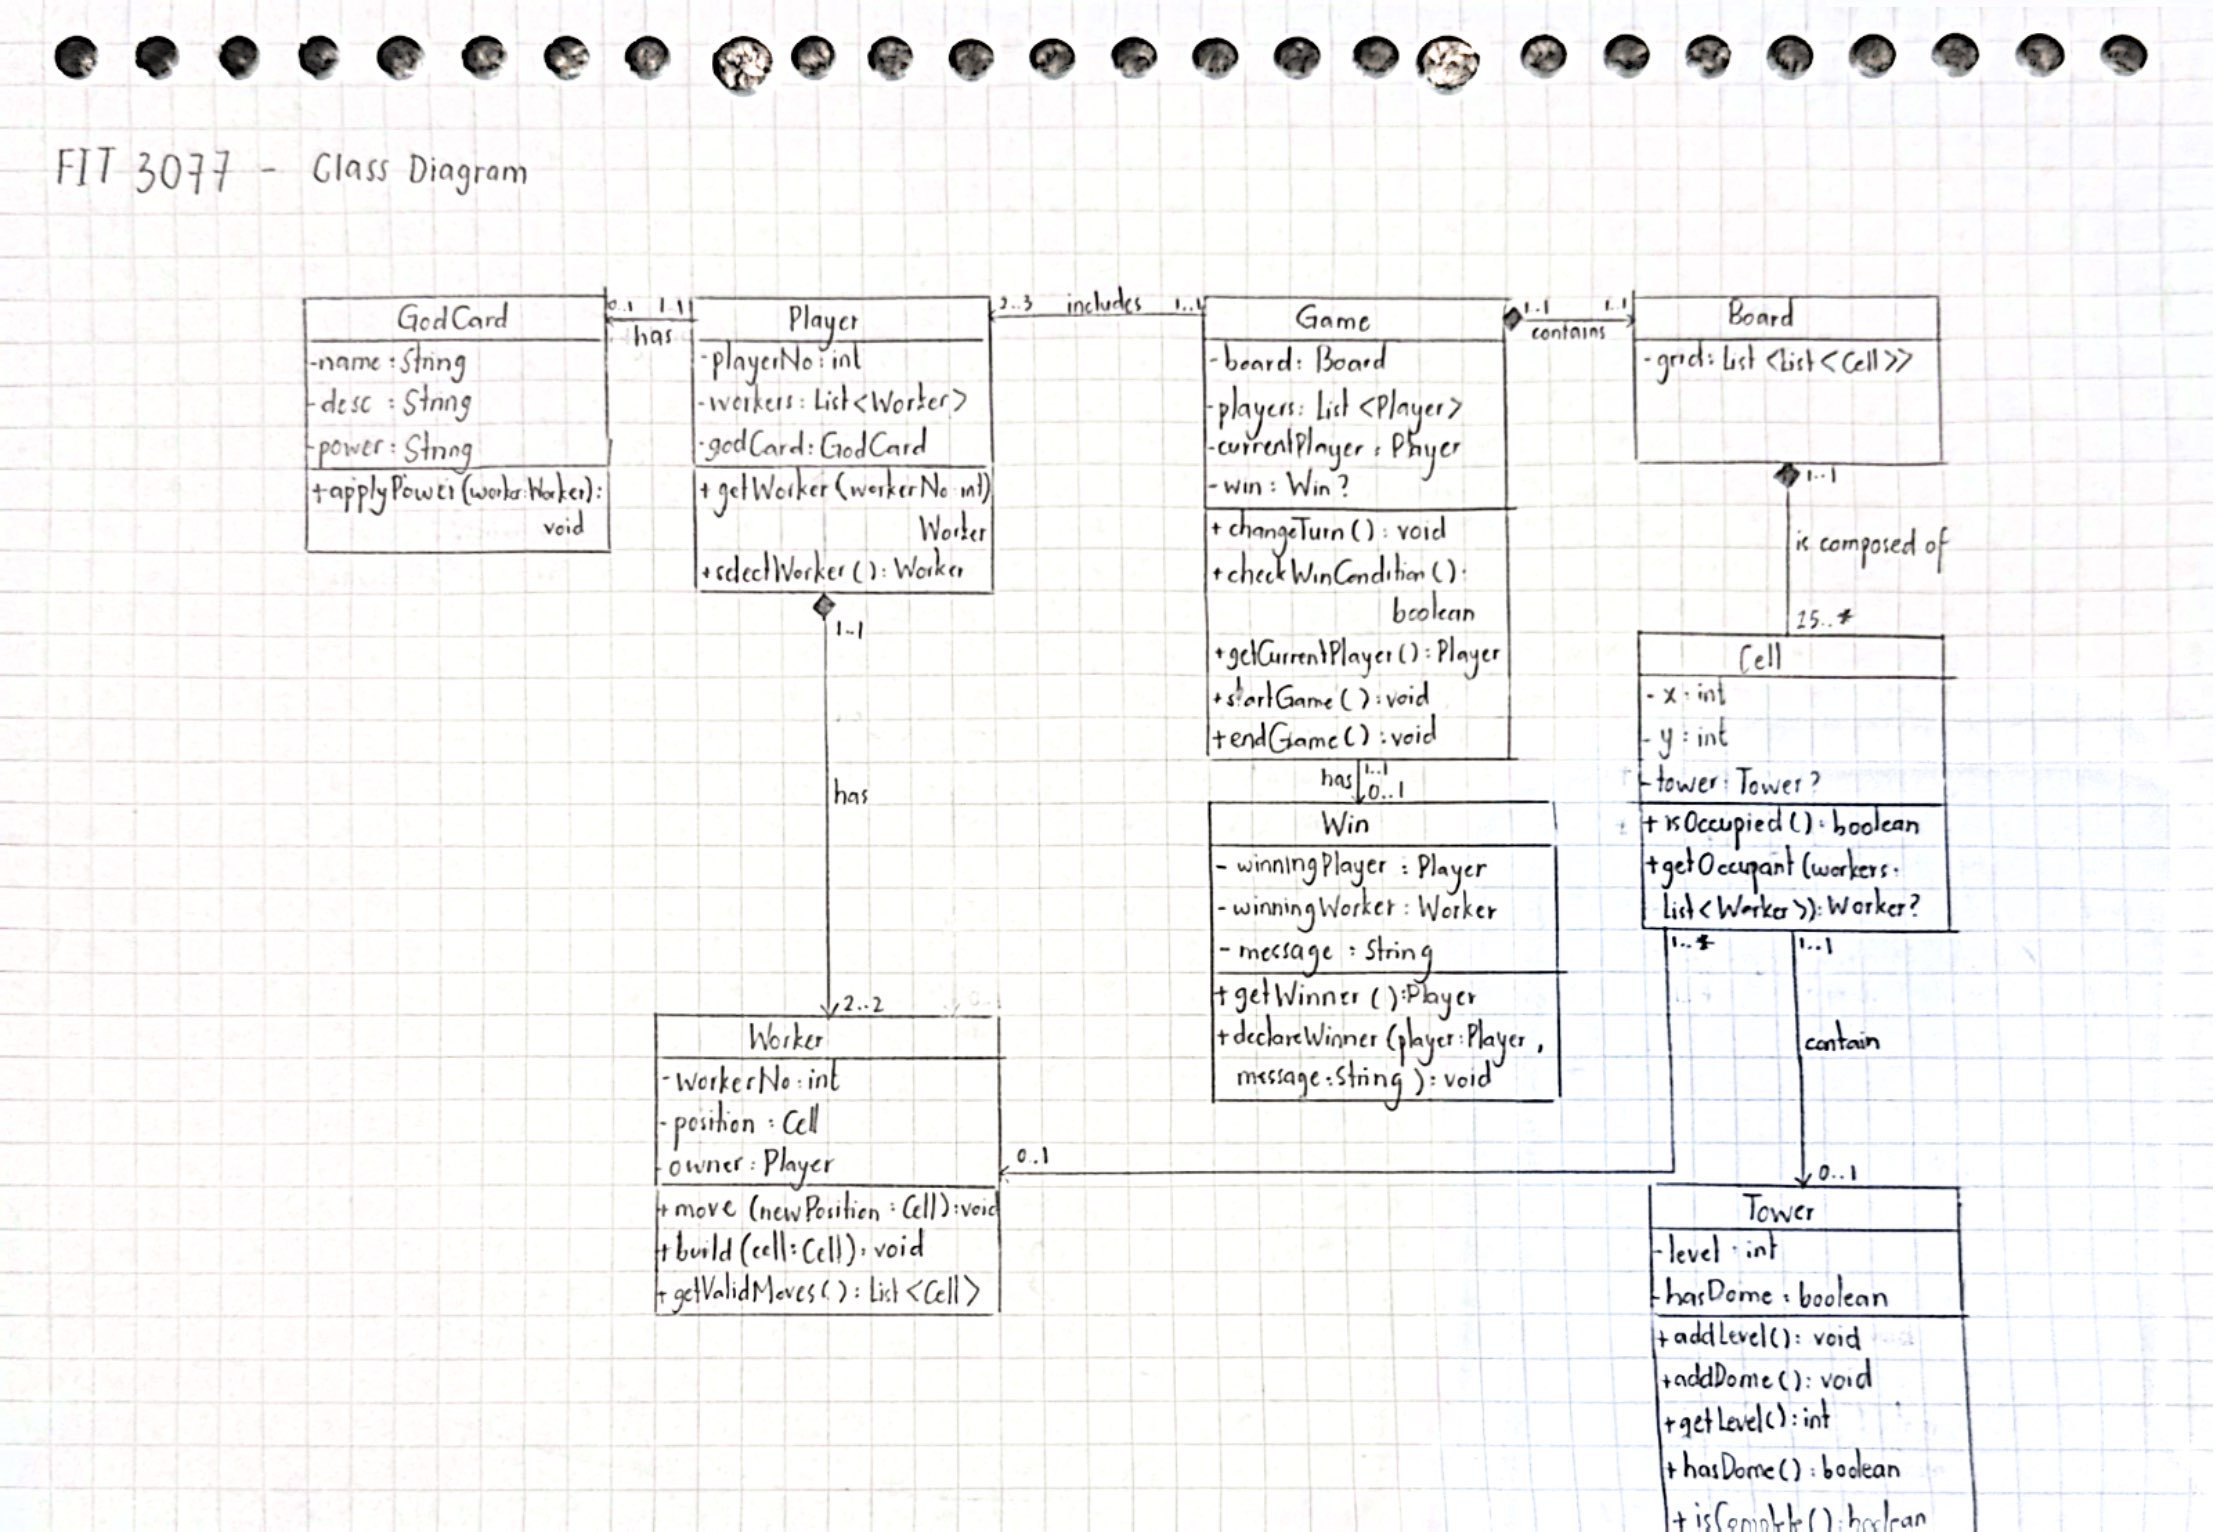 FIT 3077 - Class Diagram
GodCard
-name : String
-desc : String
-power : String
+applyPower(worker:Worker):
void
0..1 1..1
has
Player
-playerNo : int
-workers : List<Worker>
-godCard : GodCard
+ getWorker (workerNo int)
Worker
+selectWorker () : Worker
1..1
has
2..2
2..3 includes 1..1
Game
-board : Board
-players : List <Player>
-currentPlayer : Player
-win : Win ?
+ changeTurn () : void
+checkWinCondition () :
boolean
+getCurrentPlayer () : Player
+startGame () : void
+endGame () : void
has 1..1
0..1
1..1 1..1
contains
Board
-grid : List <List<Cell>>
1..1
is composed of
25..*
Cell
- x : int
- y : int
-tower : Tower ?
+ isOccupied () : boolean
+getOccupant (workers :
List<Worker>) : Worker?
1..* 1..1
contain
0..1
Win
- winningPlayer : Player
-winningWorker : Worker
- message : String
+getWinner () :Player
+declareWinner (player:Player ,
message:String ) : void
Worker
-workerNo : int
-position : Cell
-owner : Player
+move (newPosition : Cell) : void
+build (cell : Cell) : void
+getValidMoves () : List <Cell>
0..1
Tower
-level : int
-hasDome : boolean
+addLevel () : void
+addDome () : void
+getLevel () : int
+hasDome () : boolean
+isComplete () : boolean